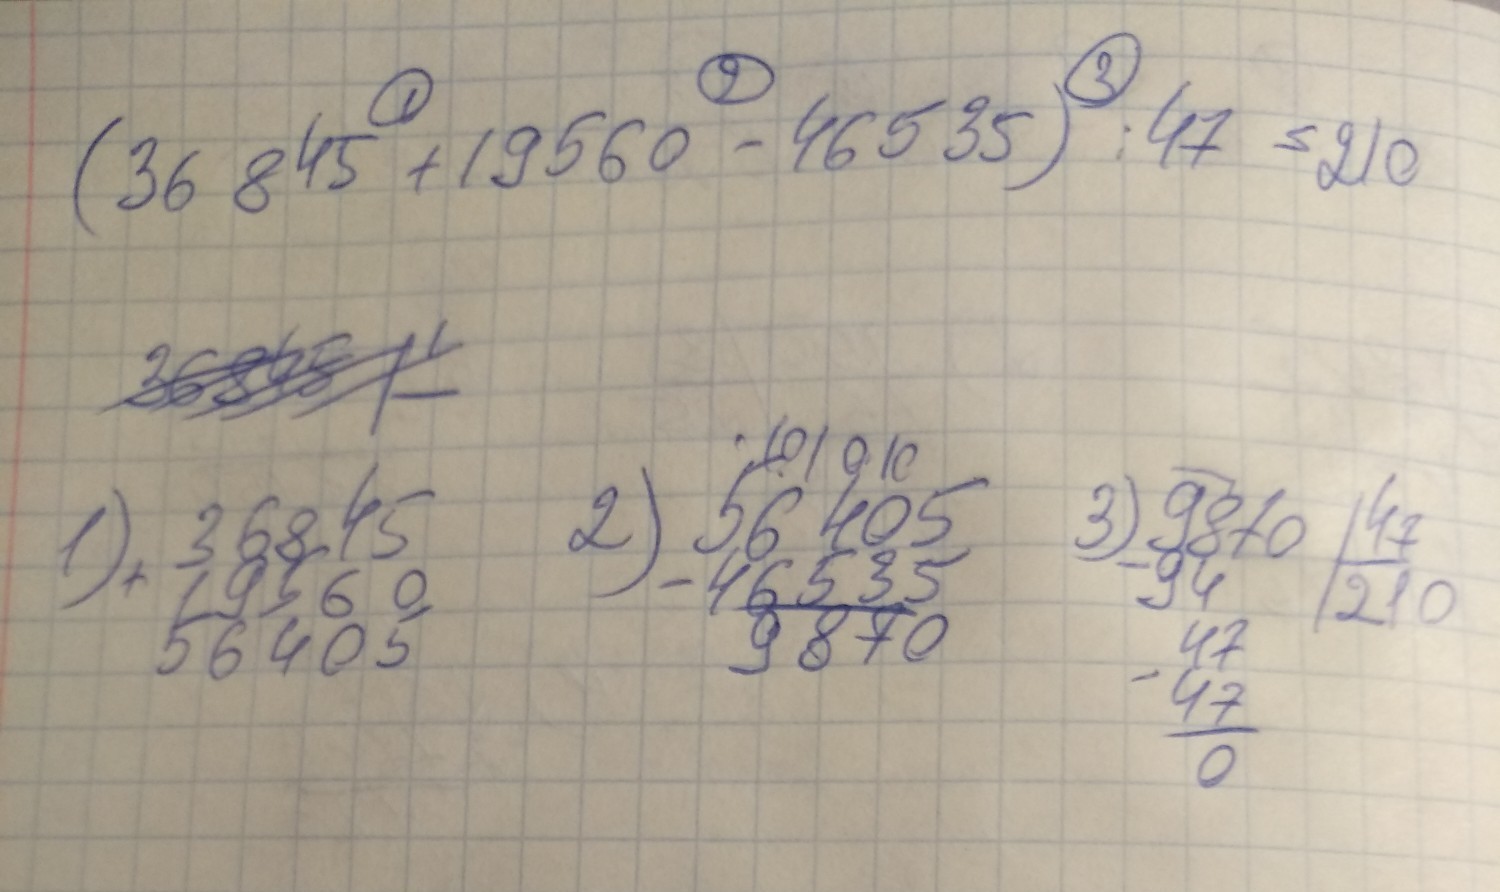 ① ② ③
(36845 + 19560 - 46535) : 47 = 210
36845
1) + 36845
19560
56405
2) 56405
- 46535
9870
3) 9870 | 47
- 94 | 210
47
- 47
0